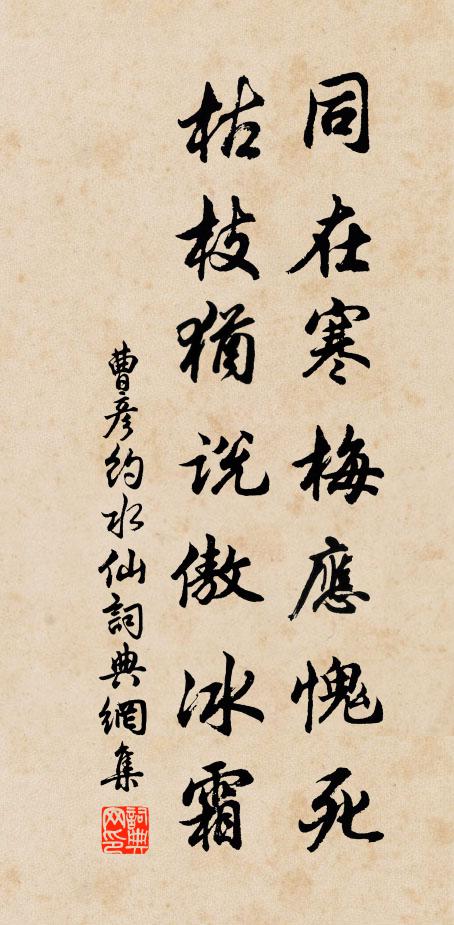 同在寒梅應愧死
枯枝猶說傲冰霜
曹彥約水仙詞典網集
詞典網印